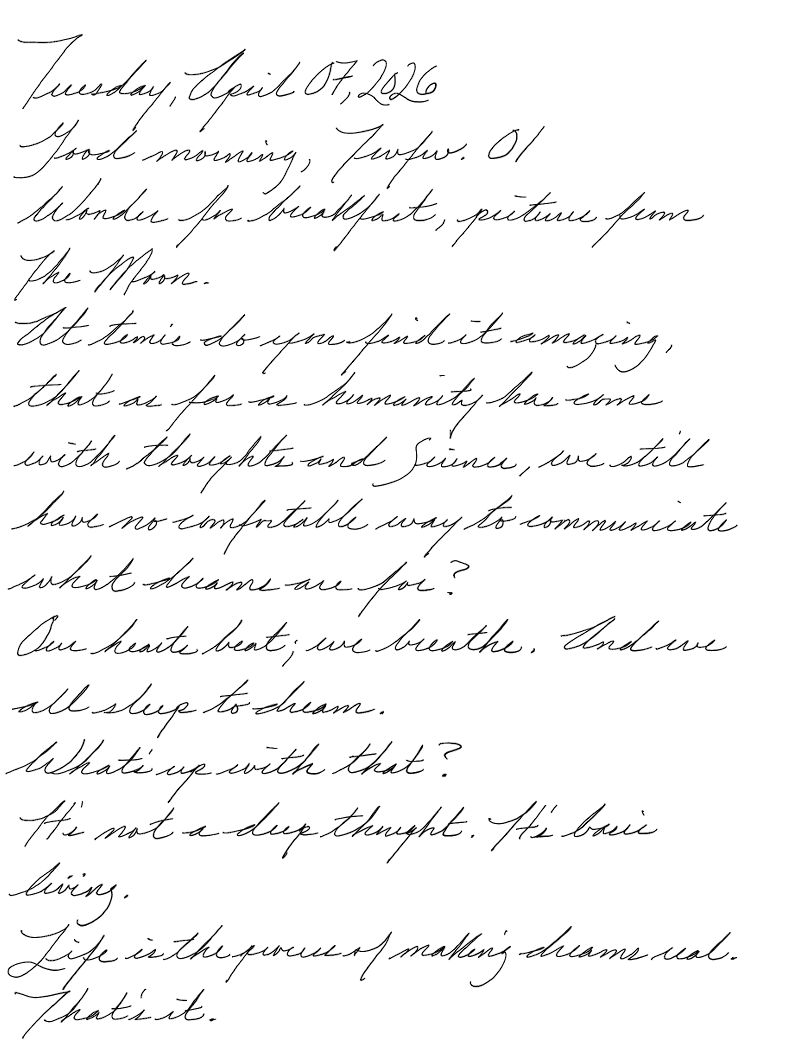 Tuesday, April 07, 2026
Good morning, 01
Wonder for breakfast, pictures from
The Moon.
At do you find it amazing,
that as far as humanity has come
with thoughts and Science, we still
have no comfortable way to communicate
what dreams are for?
Our hearts beat; we breathe. And we
all sleep to dream.
What's up with that?
It's not a deep thought. It's basic
living.
Life is the process of making dreams real.
That's it.